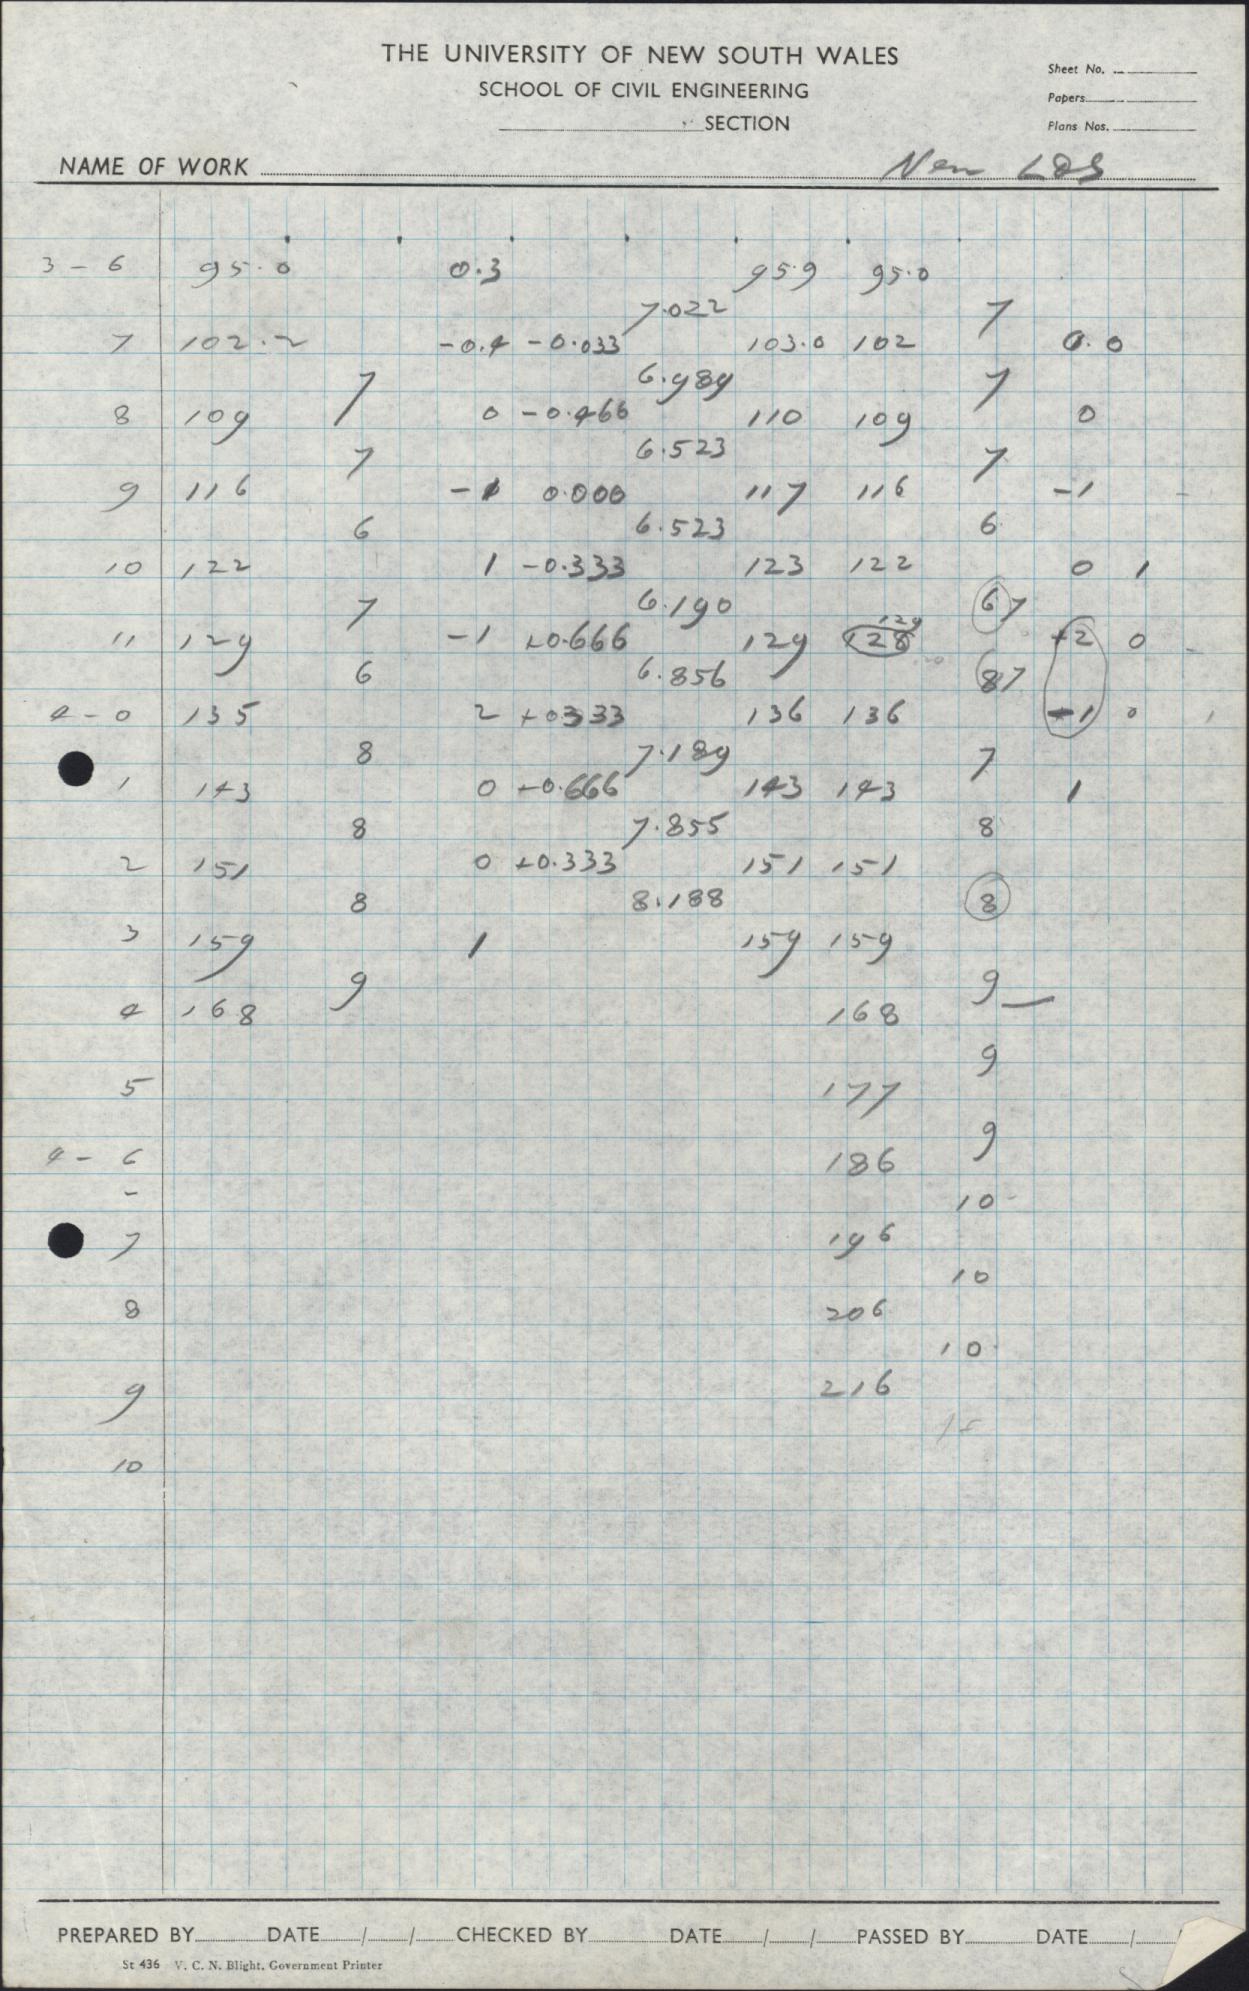 THE UNIVERSITY OF NEW SOUTH WALES
SCHOOL OF CIVIL ENGINEERING
SECTION
Sheet No.
Papers
Plans Nos.
NAME OF WORK New LOS
3 - 6 95.0 0.3 95.9 95.0
7.022 7
7 102.2 -0.4 -0.033 103.0 102 0.0
7 6.989 7
8 109 0 -0.466 110 109 0
7 6.523 7
9 116 -1 0.000 117 116 -1
6 6.523 6
10 122 1 -0.333 123 122 0 1
7 6.190 6 7
129
11 129 -1 +0.666 129 128 +2 0
6 6.856 8 7
4 - 0 135 2 +0333 136 136 -1 0
8 7.189 7
1 143 0 +0.666 143 143 1
8 7.855 8
2 151 0 +0.333 151 151
8 8.188 8
3 159 1 159 159
9 9
4 168 168
9
5 177
9
4 - 6 186
10
7 196
10
8 206
10
9 216
10
PREPARED BY DATE / / CHECKED BY DATE / / PASSED BY DATE /
St 436 V. C. N. Blight, Government Printer